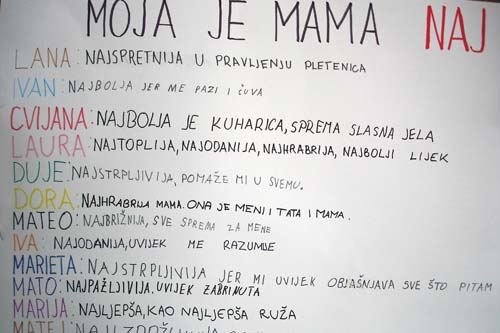 MOJA JE MAMA NAJ
LANA: NAJSPRETNIJA U PRAVLJENJU PLETENICA
IVAN: NAJBOLJA JER ME PAZI I ČUVA
CVIJANA: NAJBOLJA JE KUHARICA, SPREMA SLASNA JELA
LAURA: NAJTOPLIJA, NAJODANIJA, NAJHRABRIJA, NAJBOLJI LIJEK
DUJE: NAJSTRPLJIVIJA, POMAŽE MI U SVEMU.
DORA: NAJHRABRIJA MAMA. ONA JE MENI I TATA I MAMA.
MATEO: NAJBRIŽNIJA, SVE SPREMA ZA MENE
IVA: NAJODANIJA, UVIJEK ME RAZUMIJE
MARIETA: NAJSTRPLJIVIJA JER MI UVIJEK OBJAŠNJAVA SVE ŠTO PITAM
MATO: NAJPAŽLJIVIJA. UVIJEK ZABRINUTA
MARIJA: NAJLJEPŠA, KAO NAJLJEPŠA RUŽA